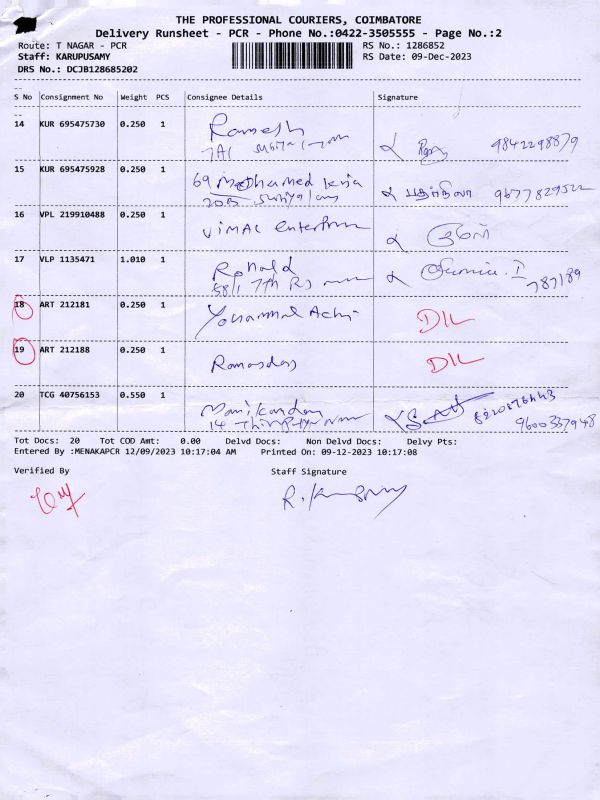 THE PROFESSIONAL COURIERS, COIMBATORE
Delivery Runsheet - PCR - Phone No.:0422-3505555 - Page No.:2
Route: T NAGAR - PCR RS No.: 1286852
Staff: KARUPUSAMY RS Date: 09-Dec-2023
DRS No.: DCJB128685202
S No Consignment No Weight PCS Consignee Details Signature
14 KUR 695475730 0.250 1 Ramesh
7A1 9842298879
15 KUR 695475928 0.250 1 69 Mohamed
20B பதர்நிஷா 9677829522
16 VPL 219910488 0.250 1 Vimal Enterprises
17 VLP 1135471 1.010 1 Ronald
58/1 7th 787189
18 ART 212181 0.250 1 DIL
19 ART 212188 0.250 1 Ramasdas DIL
20 TCG 40756153 0.550 1 Manikandan
14 9600357948
Tot Docs: 20 Tot COD Amt: 0.00 Delvd Docs: Non Delvd Docs: Delvy Pts:
Entered By :MENAKAPCR 12/09/2023 10:17:04 AM Printed On: 09-12-2023 10:17:08
Verified By Staff Signature